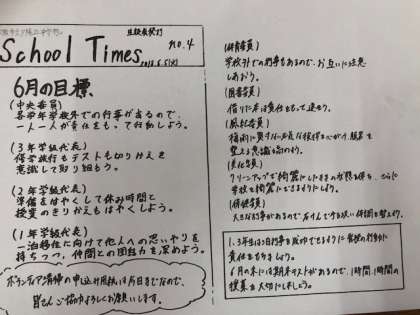 School Times
no.4
6月の目標
(中央委員)
各学年学校外での行事があるので、
一人一人が責任をもって行動しよう。
(3年学級代表)
修学旅行もテストも切りかえを
意識して取り組もう。
(2年学級代表)
準備をはやくして休み時間と
授業のきりかえもはやくしよう。
(1年学級代表)
一泊移住に向けて他人への思いやりを
持ちつつ、仲間との団結力を深めよう。
ボランティア清掃の申し込み用紙は
なので、
皆さんご協力よろしくお願いします。
(体育委員)
学校外での行事もあるので、お互いに注意
しあおう。
(図書委員)
借りた本は責任をもって返そう。
(風紀委員)
挨拶を心がけ、服装を
整える意識を高めよう。
(美化委員)
クリーンアップで綺麗にしたときの状態を保ち、さらに
学校を綺麗にできるようにしよう。
(保健委員)
大きな行事があるので、
1、3年生は
責任をもちましょう。
6月の末には期末テストがあるので、1時間、1時間の
授業を大切にしましょう。